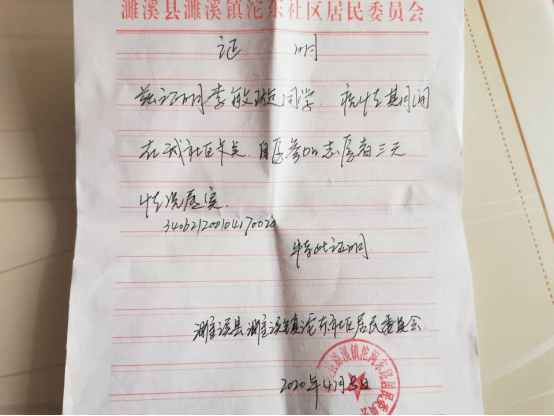 濉溪县濉溪镇沱东社区居民委员会
证 明
兹证明李敏璇同学，疫情期间
在我社区卡点，自愿参加志愿者三天
情况属实
特此证明
濉溪县濉溪镇沱东社区居民委员会
2020年4月8日